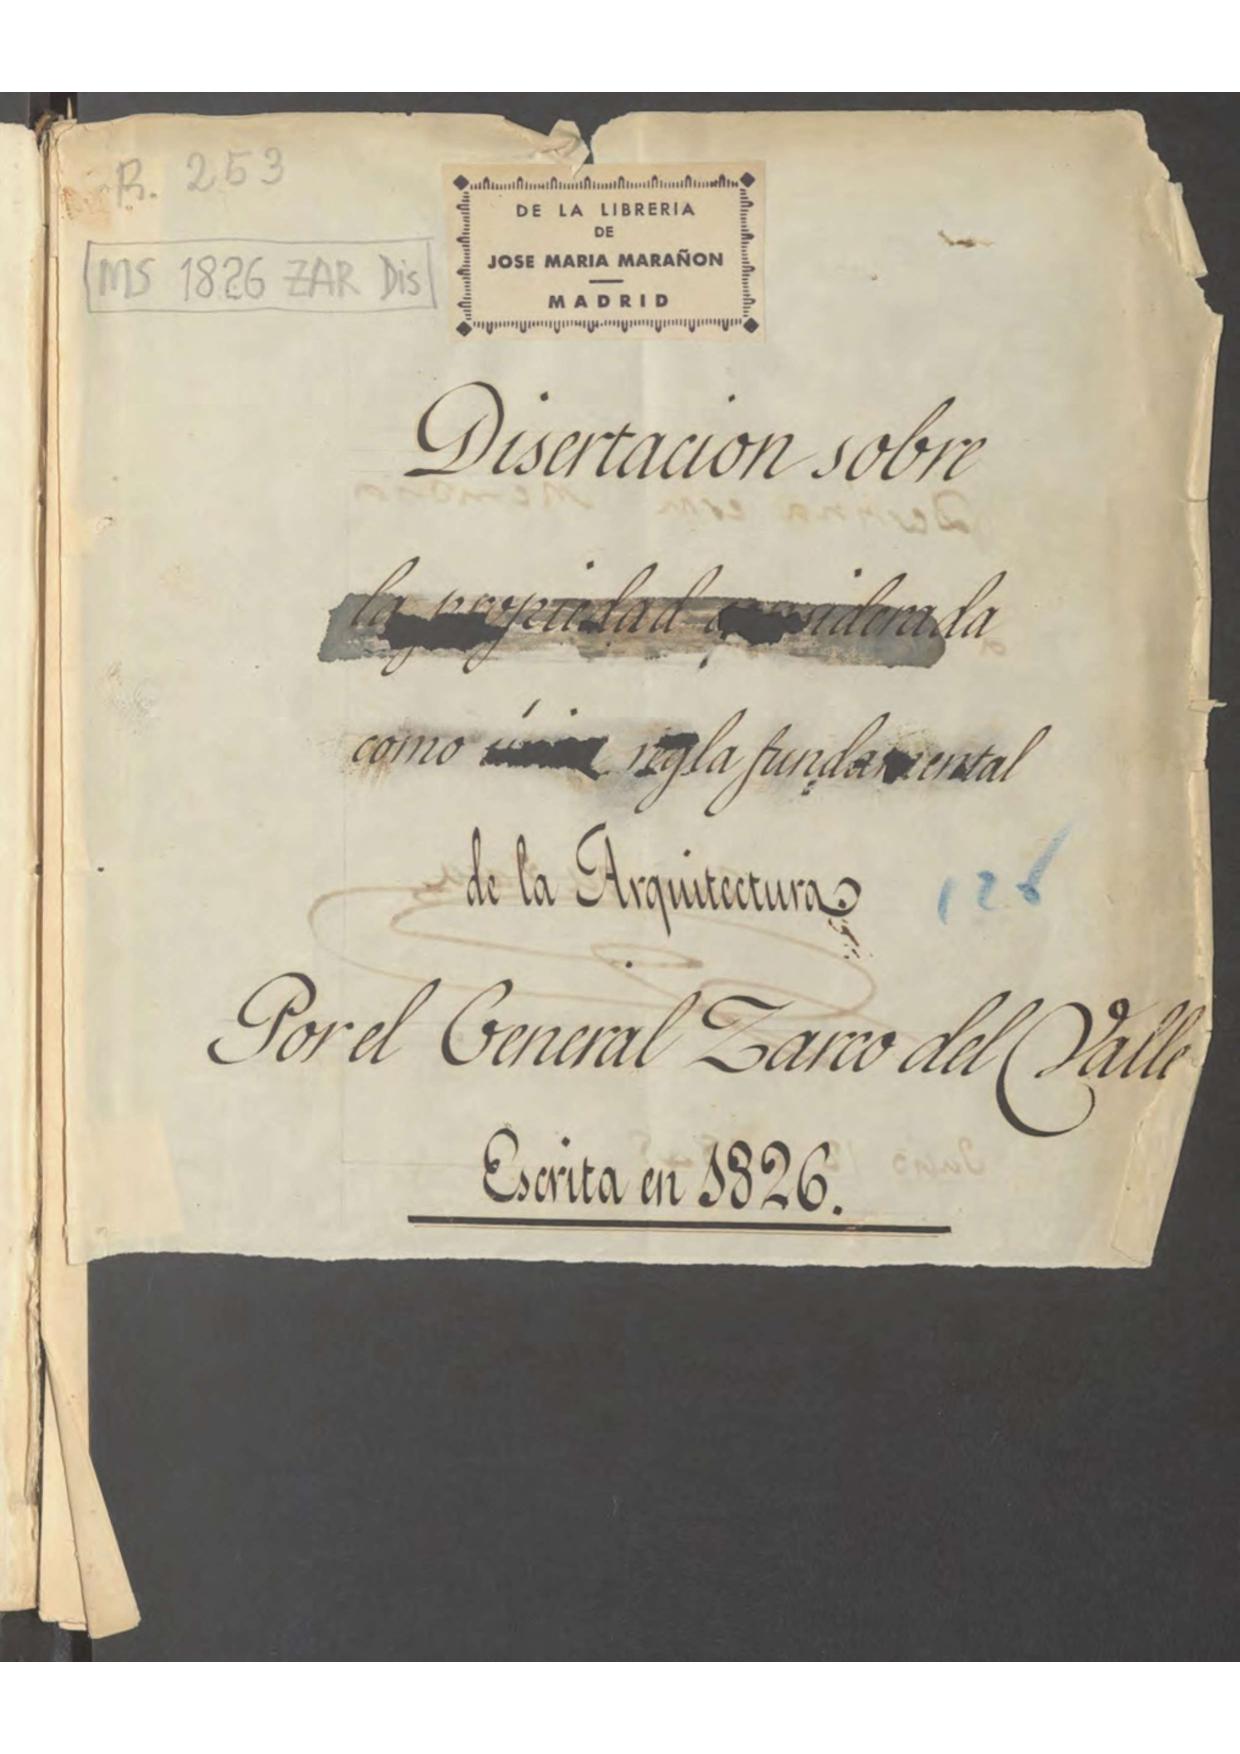 R. 253
MS 1826 ZAR Dis
DE LA LIBRERIA
DE
JOSE MARIA MARAÑON
MADRID
Disertacion sobre
la propiedad considerada
como única regla fundamental
de la Arquitectura.
126
Por el General Zarco del Valle
Escrita en 1826.